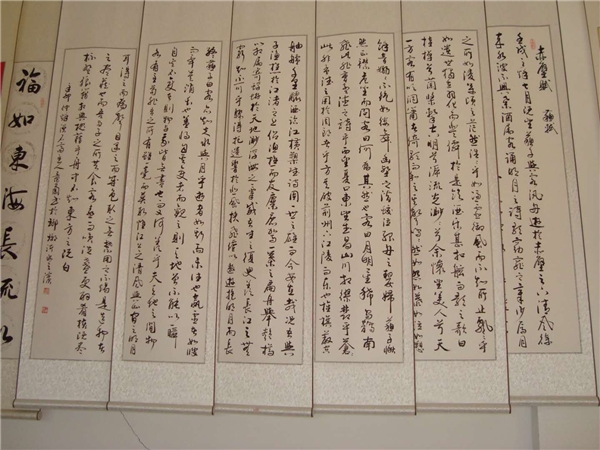 赤壁賦 蘇軾
壬戌之秋七月既望蘇子與客泛舟遊於赤壁之下清風徐
來水波不興舉酒屬客誦明月之詩歌窈窕之章少焉月
之所如凌萬頃之茫然浩浩乎如馮虛御風而不知所止飄乎
如遺世獨立羽化而登仙於是飲酒樂甚扣舷而歌之歌曰
桂棹兮蘭槳擊空明兮溯流光渺渺兮余懷望美人兮天
一方客有吹洞簫者倚歌而和之其聲嗚嗚然如怨如慕
餘音嫋嫋不絕如縷舞幽壑之潛蛟泣孤舟之嫠婦蘇子愀
然正襟危坐而問客曰何為其然也客曰月明星稀烏鵲南
飛此非曹孟德之詩乎西望夏口東望武昌山川相繆鬱乎蒼
此非孟德之困於周郎者乎方其破荊州下江陵順流而東也
舳艫千里釃酒臨江橫槊賦詩固一世之雄也而今安在哉況吾與
子漁樵於江渚之上侶魚蝦而友麋鹿駕一葉之扁舟舉匏樽
以相屬寄蜉蝣於天地渺滄海之一粟哀吾生之須臾羨長江之無
窮挾飛仙以遨遊抱明月而長
蘇子曰客亦知夫水與月乎逝者如斯而未嘗往也盈虛者如彼
而卒莫消長也蓋將自其變者而觀之則天地曾不能以一瞬
自其不變者而觀之則物與我皆無盡也而又何羨乎且夫天地之間物
各有主苟非吾之所有雖一毫而莫取惟江上之清風與山間之明月
耳得之而為聲目遇之而成色取之無禁用之不竭是造物者
之無盡藏也而吾與子之所共食客喜而笑洗盞更酌肴核既盡
杯盤狼藉相與枕藉乎舟中不知東方之既白
福如東海長流水